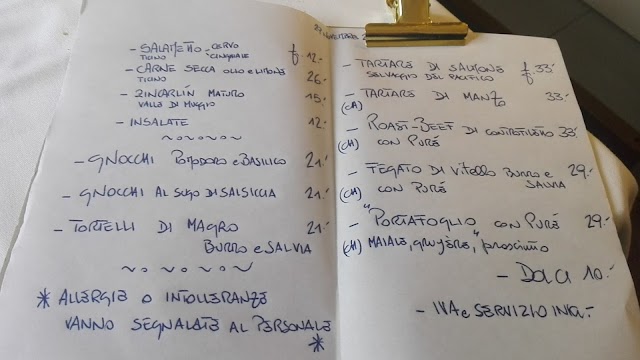 - SALAMETTO CERVO f 12.-
TICINO CINGHIALE
- CARNE SECCA OLIO e LIMONE 26.-
TICINO
- ZINCARLIN MATURO 15.-
VALLE DI MUGGIO
- INSALATE 12.-
~o~o~o~
- GNOCCHI POMODORO e BASILICO 21.-
- GNOCCHI AL SUGO DI SALSICCIA 21.-
- TORTELLI DI MAGRO 21.-
BURRO e SALVIA
~o~o~o~
* ALLERGIE O INTOLLERANZE
VANNO SEGNALATE AL PERSONALE *
NOVEMBRE
- TARTARE DI SALMONE f 33.-
SELVAGGIO DEL PACIFICO
- TARTARE DI MANZO 33.-
(CH)
- ROAST-BEEF DI CONTROFILETTO 33.-
(CH) CON PURÉ
- FEGATO DI VITELLO BURRO e 29.-
(CH) CON PURÉ SALVIA
- "PORTAFOGLIO" CON PURÉ 29.-
(CH) MAIALE, gruyère, prosciutto
- Dolci 10.-
- IVA e SERVIZIO INCL.-